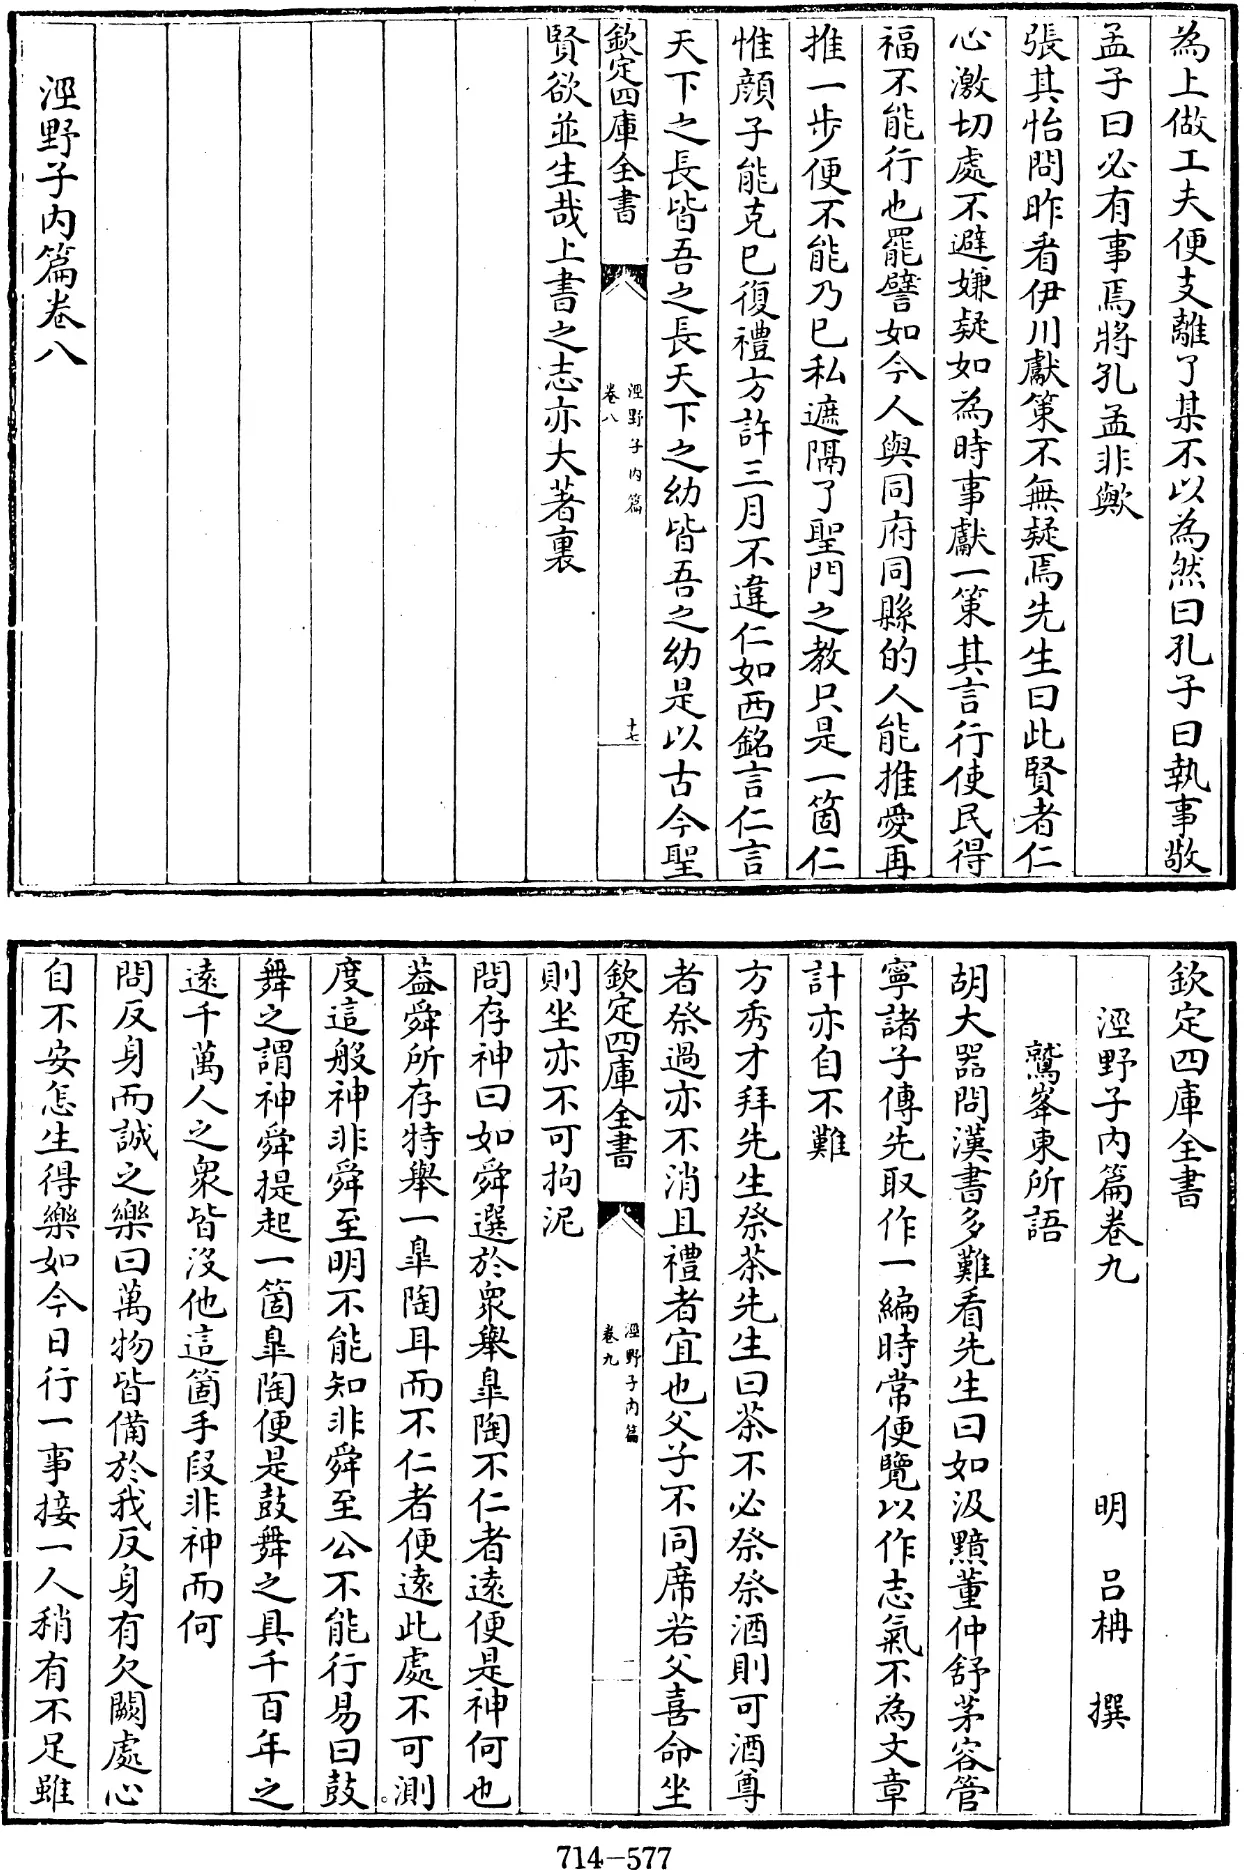 為上做工夫便支離了某不以為然曰孔子曰執事敬
孟子曰必有事焉將孔孟非歟
張其怡問昨看伊川獻策不無疑焉先生曰此賢者仁
心激切處不避嫌疑如為時事獻一策其言行使民得
福不能行也罷譬如今人與同府同縣的人能推愛再
推一步便不能乃已私遮隔了聖門之教只是一箇仁
惟顏子能克已復禮方許三月不違仁如西銘言仁言
天下之長皆吾之長天下之幼皆吾之幼是以古今聖
欽定四庫全書
涇野子內篇
卷八
十七
賢欲並生哉上書之志亦大著裏
涇野子內篇卷八
欽定四庫全書
涇野子內篇卷九
明 呂柟 撰
鷲峯東所語
胡大器問漢書多難看先生曰如汲黯董仲舒茅容管
寧諸子傳先取作一編時常便覽以作志氣不為文章
計亦自不難
方秀才拜先生祭茶先生曰茶不必祭祭酒則可酒尊
者祭過亦不消且禮者宜也父子不同席若父喜命坐
欽定四庫全書
涇野子內篇
卷九
一
則坐亦不可拘泥
問存神曰如舜選於衆舉臯陶不仁者遠便是神何也
葢舜所存特舉一臯陶耳而不仁者便遠此處不可測
度這般神非舜至明不能知非舜至公不能行易曰鼓
舞之謂神舜提起一箇臯陶便是鼓舞之具千百年之
遠千萬人之衆皆沒他這箇手段非神而何
問反身而誠之樂曰萬物皆備於我反身有欠闕處心
自不安怎生得樂如今日行一事接一人稍有不足雖
714-577